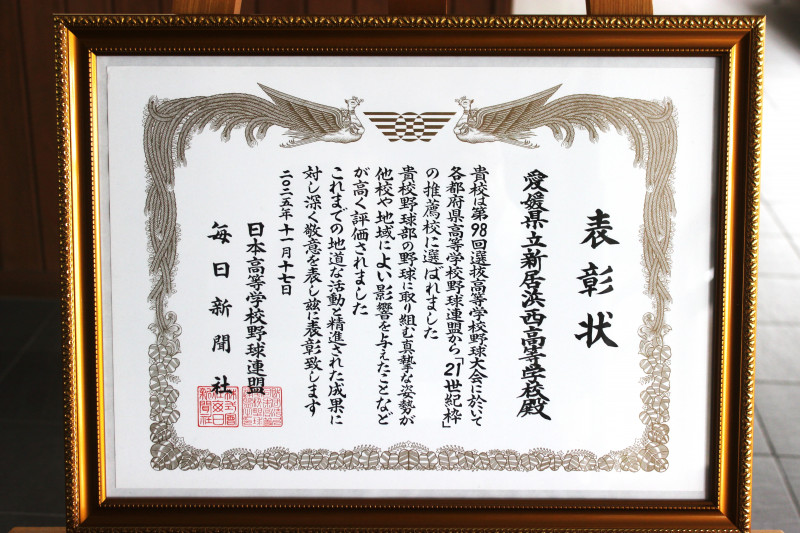 表彰状
愛媛県立新居浜西高等学校殿
貴校は第98回選抜高等学校野球大会に於いて
各都府県高等学校野球連盟から「21世紀枠」
の推薦校に選ばれました
貴校野球部の野球に取り組む真摯な姿勢が
他校や地域によい影響を与えたことなど
が高く評価されました
これまでの地道な活動と精進された成果に
対し深く敬意を表し玆に表彰致します
二〇二五年十一月十七日
日本高等学校野球連盟
毎日新聞社